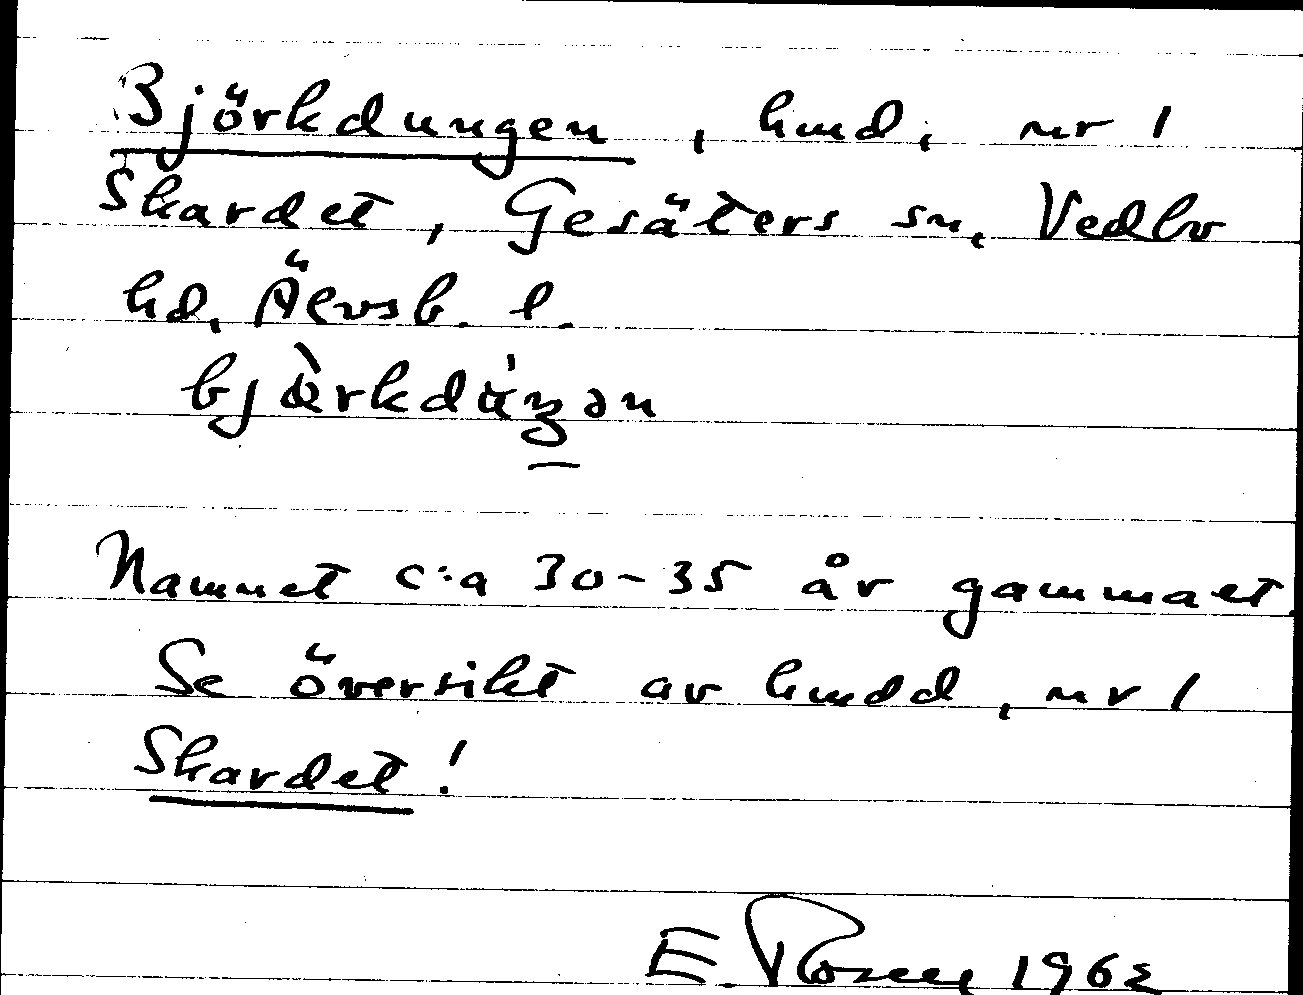 Björkdungen, hmd, nr 1
Skardet, Gesäters sn, Vedbo
hd. Älvsb. l.
Namnet c:a 30-35 år gammalt.
Se översikt av hmdd, nr 1
Skardet!
E. 1962